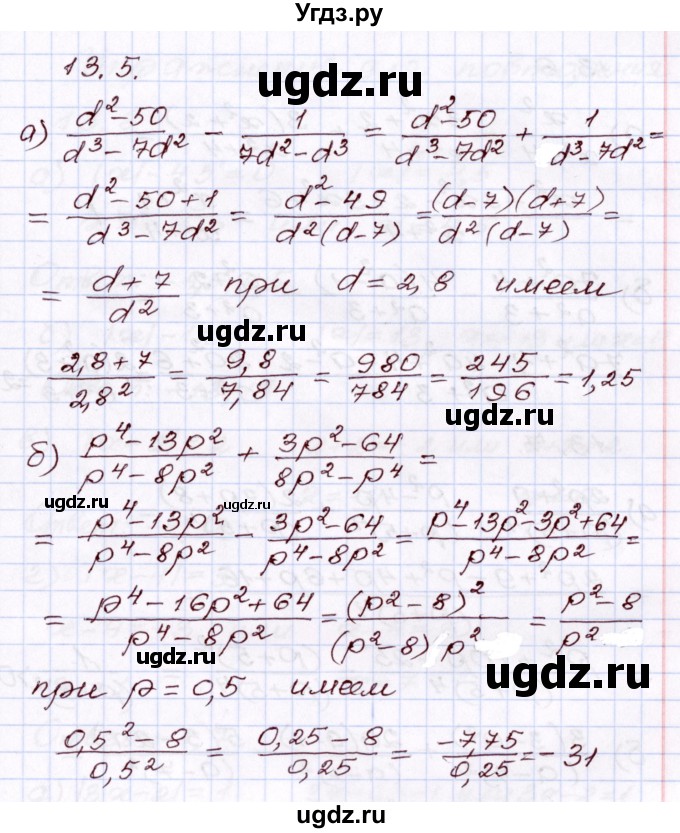 Угдз.ру
13.5.
ugdz.ru
а) (d²-50)/(d³-7d²) - 1/(7d²-d³) = (d²-50)/(d³-7d²) + 1/(d³-7d²) =
= (d²-50+1)/(d³-7d²) = (d²-49)/(d²(d-7)) = ((d-7)(d+7))/(d²(d-7)) =
= (d+7)/d² при d=2,8 имеем
ugdz.ru
(2,8+7)/2,8² = 9,8/7,84 = 980/784 = 245/196 = 1,25
ugdz.ru
б) (p⁴-13p²)/(p⁴-8p²) + (3p²-64)/(8p²-p⁴) =
ugdz.ru ugdz.ru
= (p⁴-13p²)/(p⁴-8p²) - (3p²-64)/(p⁴-8p²) = (p⁴-13p²-3p²+64)/(p⁴-8p²) =
= (p⁴-16p²+64)/(p⁴-8p²) = (p²-8)²/((p²-8)p²) = (p²-8)/p²
ugdz.ru ugdz.ru
при p=0,5 имеем
(0,5²-8)/0,5² = (0,25-8)/0,25 = -7,75/0,25 = -31
ugdz.ru
Угдз.ру